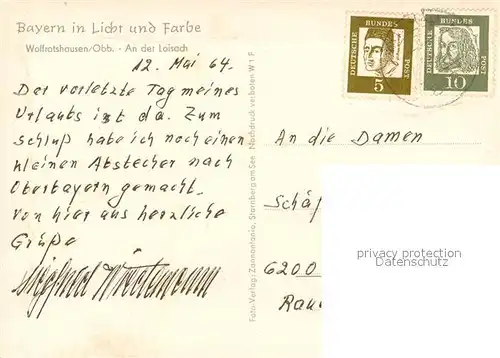 Bayern in Licht und Farbe
Wolfratshausen/Obb. - An der Loisach
12. Mai 64.
Der vorletzte Tag meines
Urlaubs ist da. Zum
Schluß habe ich noch einen
kleinen Abstecher nach
Oberbayern gemacht.
Von hier aus herzliche
Grüße
Siegfried
Foto-Verlag: Zanmontanio, Starnberg am See. Nachdruck verboten W 1 F
DEUTSCHE BUNDES POST
5
DEUTSCHE BUNDES POST
10
An die Damen
Schäf
6200
Rau
privacy protection
Datenschutz